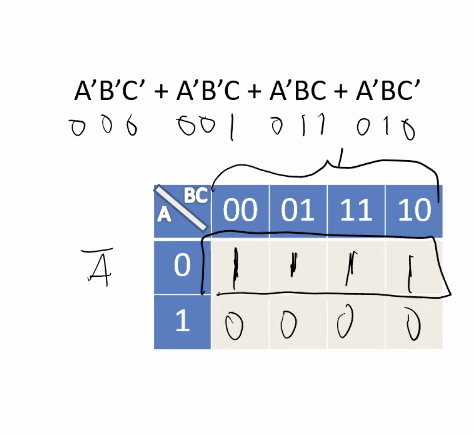 A'B'C' + A'B'C + A'BC + A'BC'
0 0 0 0 0 1 0 1 1 0 1 0
1
BC
A
00 01 11 10
A̅ 0 1 1 1 1
1 0 0 0 0